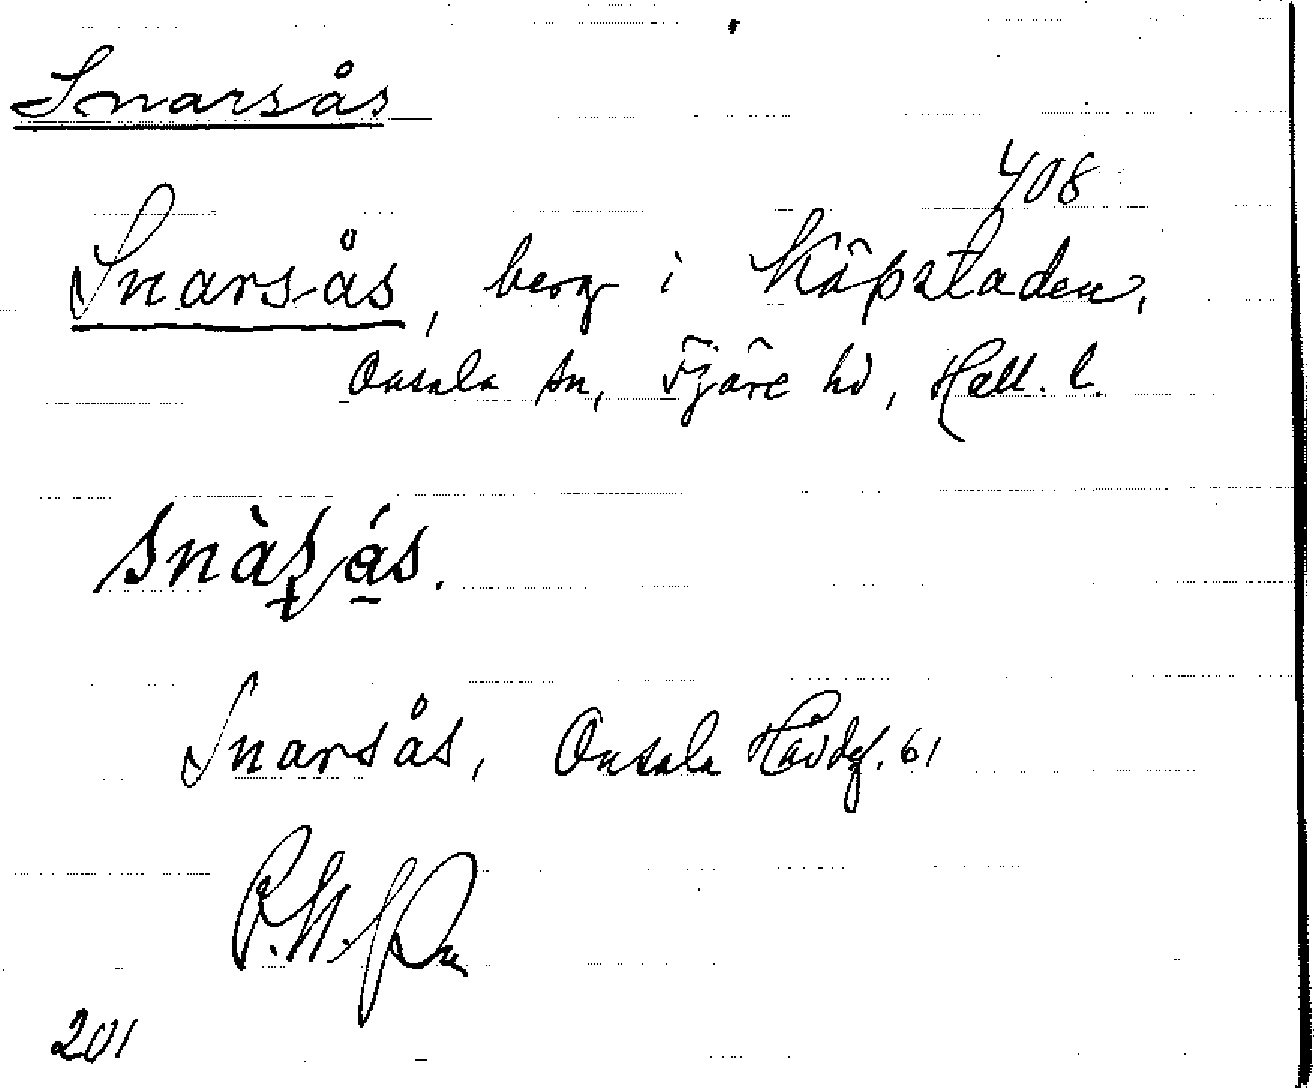 Snarsås
408
Snarsås, berg i Köpstaden,
Onsala sn, Fjäre hd, Hall. l.
snàs ás.
Snarsås, Onsala Hävdgf. 61
201